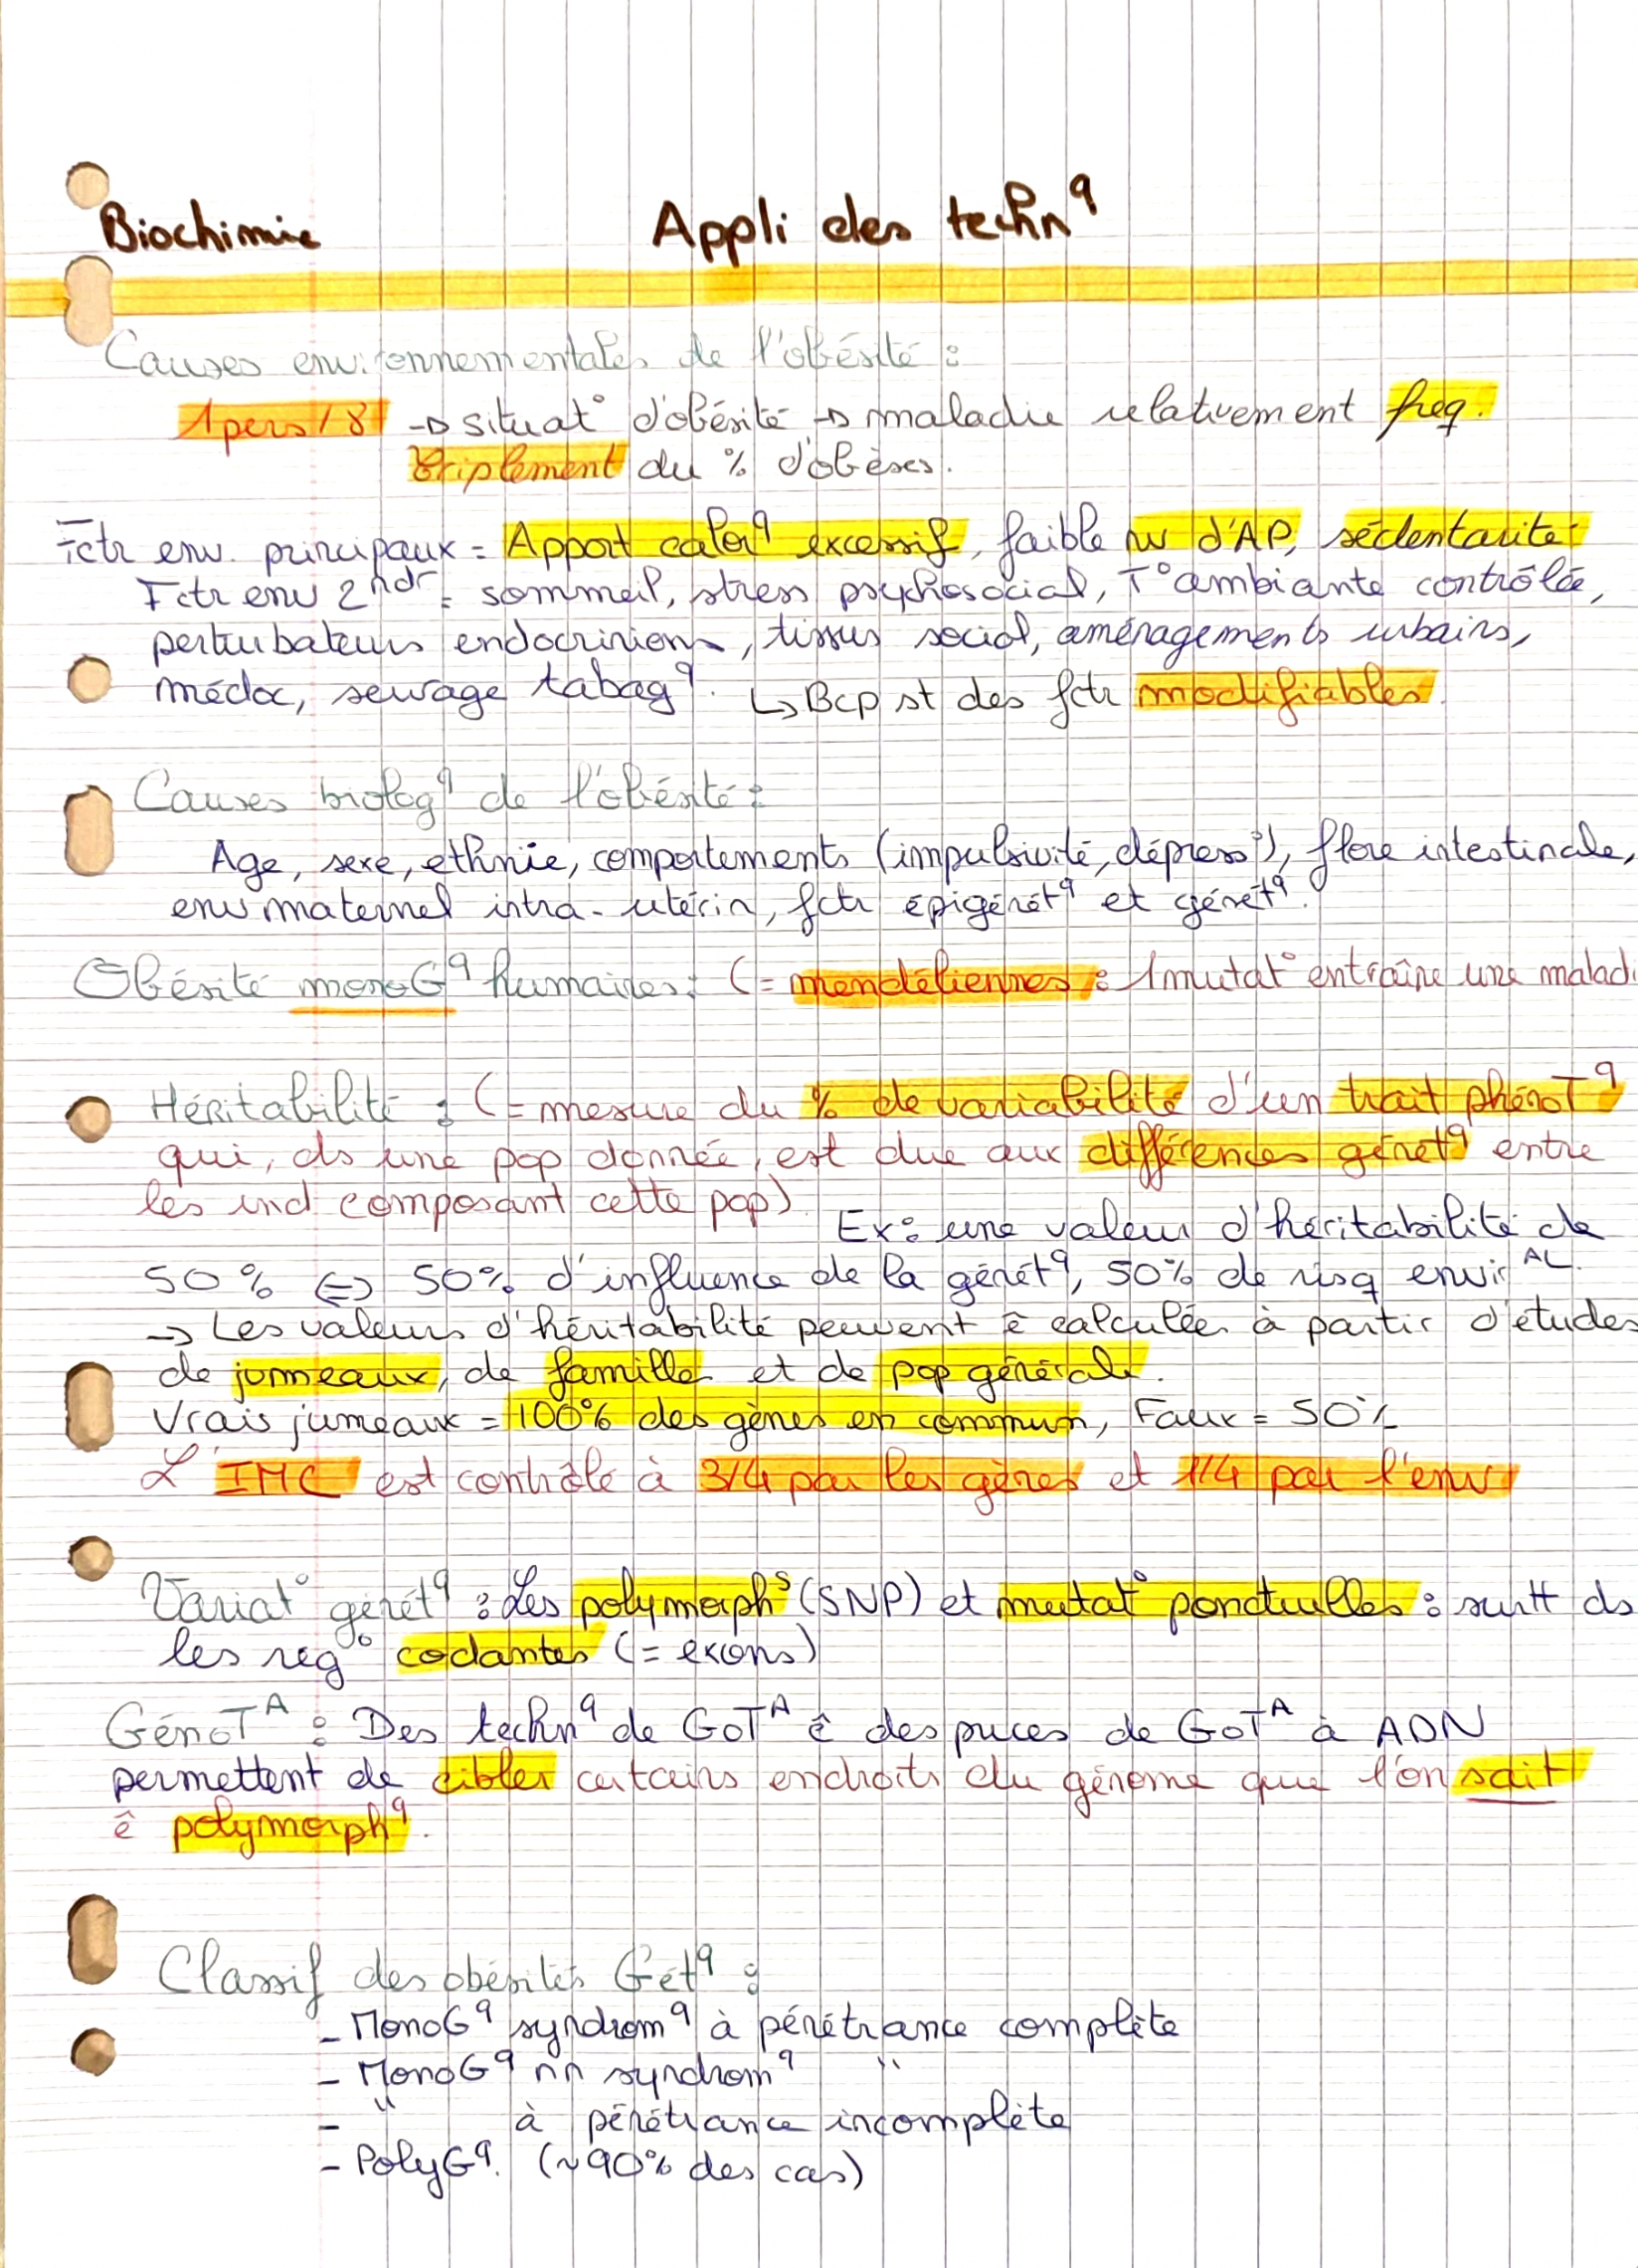 Biochimie Appli des techn^q
Causes environnementales de l'obésité :
1 pers / 8 → situat° d'obésité → maladie relativement freq.
triplement du % d'obèses.
Fctr env. principaux = Apport calor^q excessif, faible nv d'AP, sédentarité
Fctr env 2^ndr = sommeil, stress psychosocial, T° ambiante contrôlée,
perturbateurs endocriniens, tissus social, aménagements urbains,
médoc, sevrage tabag^q. ↳ Bcp st des fctr modifiables.
Causes biolog^q de l'obésité :
Age, sexe, ethnie, comportements (impulsivité, dépress°), flore intestinale,
env maternel intra-utérin, fctr épigénét^q et génét^q.
Obésité monoG^q humaines : (= mendéliennes : 1 mutat° entraîne une maladi
Héritabilité : (= mesure du % de variabilité d'un trait phénoT^q
qui, ds une pop donnée, est due aux différences génét^q entre
les ind composant cette pop)
Ex : une valeur d'héritabilité de
50% ⇔ 50% d'influence de la génét^q, 50% de risq envir^AL.
→ Les valeurs d'héritabilité peuvent ê calculées à partir d'études
de jumeaux, de famille et de pop générale.
Vrais jumeaux = 100% des gènes en commun, Faux = 50%
L'IMC est contrôlé à 3/4 par les gènes et 1/4 par l'env
Variat° génét^q : Les polymorph^s (SNP) et mutat° ponctuelles : surtt ds
les rég° codantes (= exons)
GénoT^A : Des techn^q de GoT^A ê des puces de GoT^A à ADN
permettent de cibler certains endroits du génome que l'on sait
ê polymorph^q.
Classif des obésités Gét^q :
- MonoG^q syndrom^q à pénétrance complète
- MonoG^q nn syndrom^q "
- " à pénétrance incomplète
- PolyG^q. (~90% des cas)